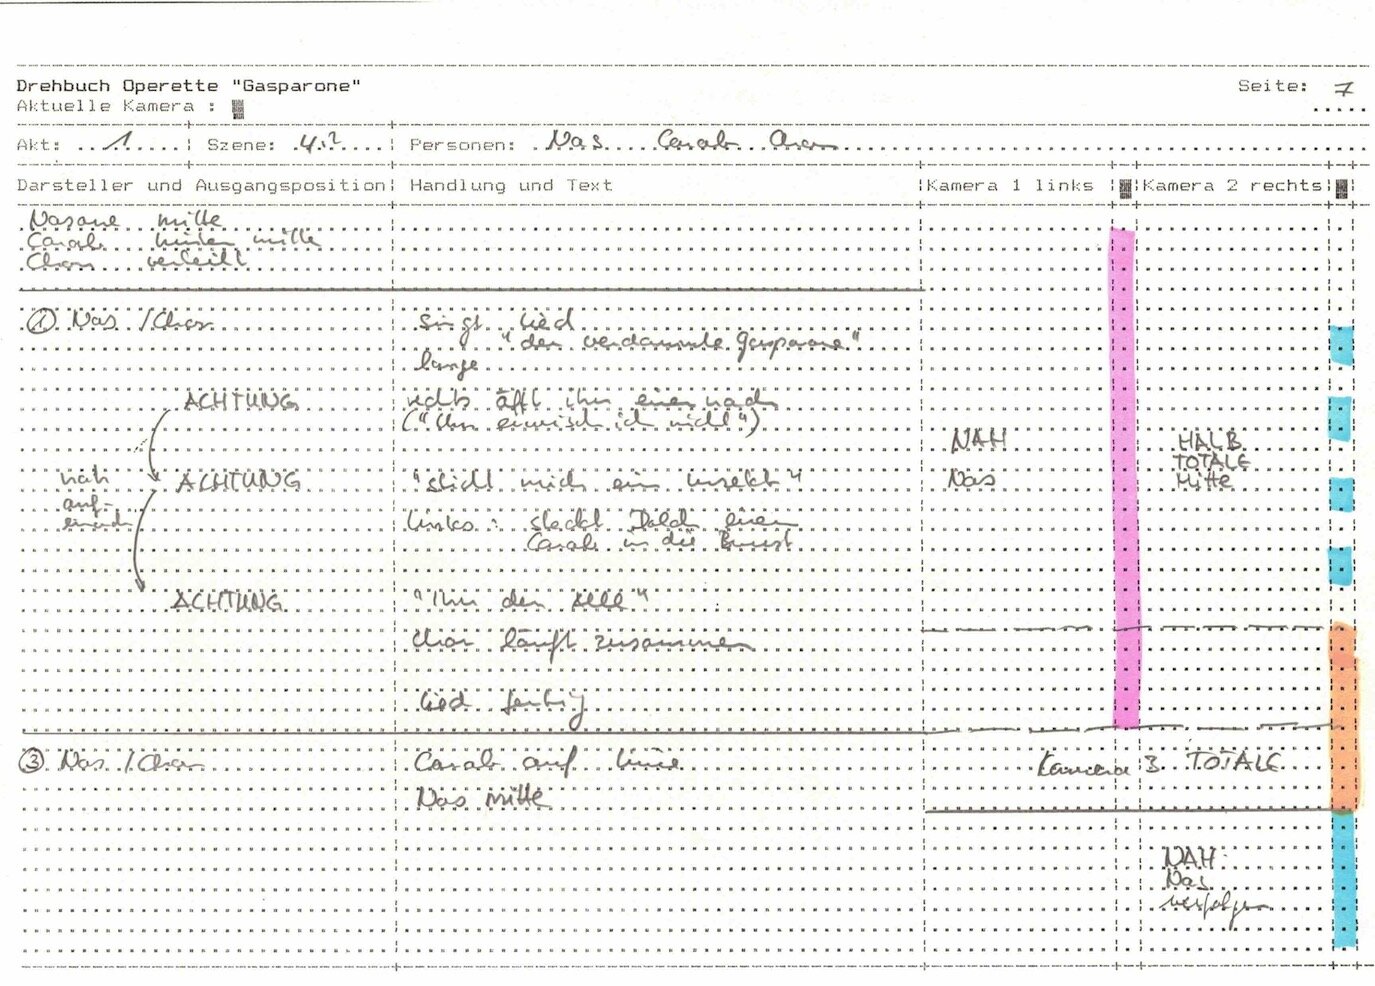 Drehbuch Operette "Gasparone"
Seite: 7
Aktuelle Kamera :
Akt: 1 Szene: 4.2 Personen: Nas Carab Chor
Darsteller und Ausgangsposition Handlung und Text Kamera 1 links Kamera 2 rechts
Nasone mitte
Carab. hinten mitte
Chor verteilt
① Nas /Chor singt Lied
"der verdammte Gasparone"
lange
ACHTUNG rechts äfft ihn einer nach
("Ihn erwisch ich nicht")
NAH HALB
TOTALE
nah ACHTUNG "sticht mich ein Insekt" Nas Mitte
auf-
links: steckt Dolch einem
Carab in die Brust
ACHTUNG "Ihr der
Chor läuft zusammen
Lied fertig
③ Nas /Chor Carab auf Linie Kamera 3 TOTALE
Nas mitte
NAH
Nas
verfolgen